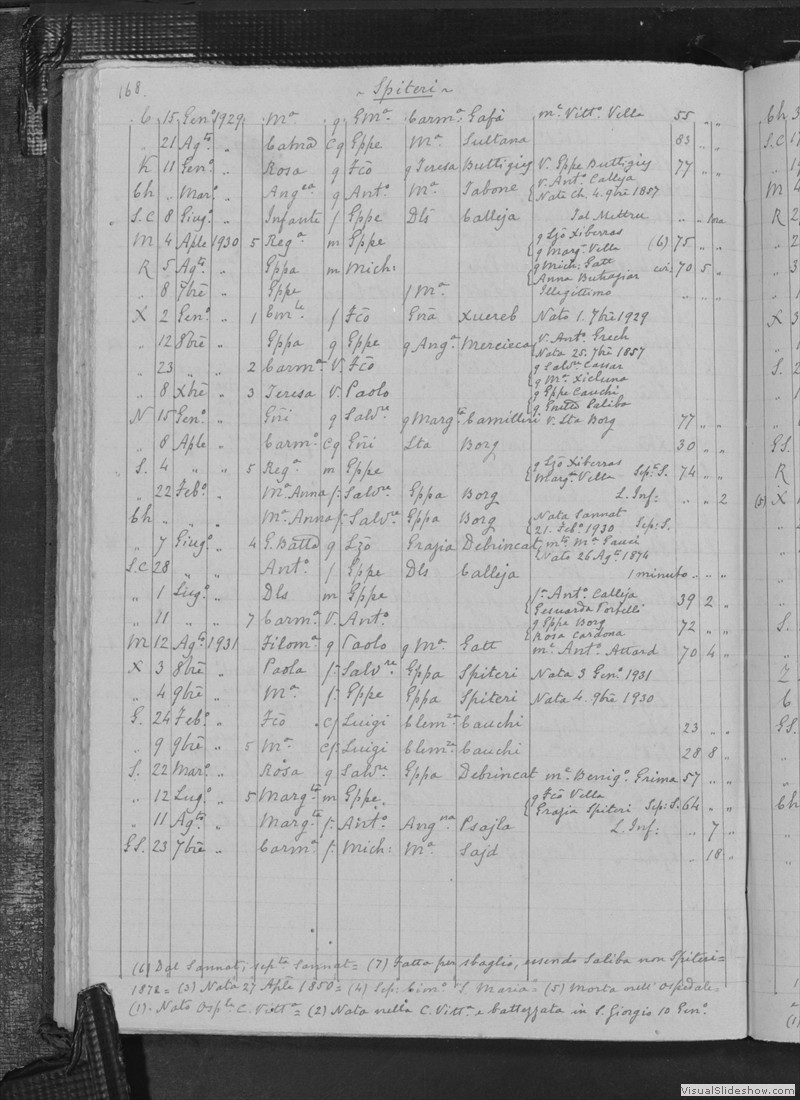 168. ~ Spiteri ~
C 15 Gen.º 1929 Mª g Gmª Carmª Gafà mº Vittº Vella 55 „ „
„ 21 Agto „ Calcid Cg Gppe Mª Sultana 83 „ „
K 11 Gen.º „ Rosa g Fcō g Teresa Buttigieg V. Gppe Buttigieg 77 „ „
Ch „ Mar.º „ Ang.ca g Ant.º Mª Tabone { V. Ant.º Calleja
Nata Ch. 4. 9bre 1857
S.C 8 Giug.º „ Infante f Gppe Dls Calleja „ „ 1na
M 4 Aple 1930 5 Reg.ª m Gppe { g Ljō Xiberras
g Marg.ª Vella (6) 75 „ „
R 5 Ag.to „ Gppa m Mich: { g Mich: Gatt
Anna Buhagiar 70 5 „
„ 8 7bre „ Gppe f Mª Illegittimo „ „ „
X 2 Gen.º „ 1 Em.le f Fcō Gnā Xuereb Nato 1. 7bre 1929
„ 12 8bre „ Gppa g Gppe g Ang.ª Mercieca { V. Ant.º Grech
Nata 25. 7bre 1857
„ 23 „ „ 2 Carm.ª V. Fcō { g Salv.re Cassar
g Mª Xicluna
„ 8 Xbre „ 3 Teresa V. Paolo { g Gppe Cauchi
g. Saliba
N 15 Gen.º „ Gñi g Salv.re g Marg.ta Camilleri V. Lta Borg 77 „ „
„ 8 Aple „ Carm.º Cg Gñi Lta Borg 30 „ „
S. 4 „ „ 5 Reg.ª m Gppe { g Ljō Xiberras
Marg.ª Vella Sep: S. 74 „ „
„ 22 Feb.º „ Mª Anna f. Salv.re Gppa Borg L. Inf: „ „ 2
Ch „ „ „ Mª Anna f. Salv.re Gppa Borg { Nata Sannat
21. Feb.º 1930 Sep: S.
„ 7 Giug.º „ 4 G. Batta g Lzō Grazia Debrincat mto Mª Gauci
Nato 26 Ag.to 1874
S.C 28 „ „ Ant.º f Gppe Dls Calleja 1 minuto „ „
„ 1 Lug.º „ Dls m Gppe { f.a Ant.º Calleja
Portelli 39 2 „
„ 11 „ „ 7 Carm.ª V. Ant.º { g Gppe Borg
Rosa Cardona 72 „ „
M 12 Ag.to 1931 Filom.ª g Paolo g Mª Gatt mª Ant.º Attard 70 4 „
X 3 8bre „ Paola f. Salv.re Gppa Spiteri Nata 3 Gen.º 1931
„ 4 9bre „ Mª f. Gppe Gppa Spiteri Nata 4. 9bre 1930
G. 24 Feb.º „ Fcō cf Luigi Clem.za Cauchi 23 „ „
„ 9 9bre „ 5 Mª cf: Luigi Clem.za Cauchi 28 8 „
S. 22 Mar.º „ Rosa g Salv.re Gppa Debrincat mª Benig.º Grima 57 „ „
„ 12 Lug.º „ 5 Marg.ta m Gppe { g Fcō Vella
Grazia Spiteri Sep: S. 64 „ „
„ 11 Ag.to „ Marg.ta f. Ant.º Ang.na Psajla L. Inf: „ 7 „
GS. 23 7bre „ Carm.ª f. Mich: Mª Sajd „ 18 „
(6) Dal Sannat; sep.ta Sannat = (7) Fatta per sbaglio, essendo Saliba non Spiteri =
1872 = (3) Nata 27 Aple 1850 = (4) Sep: Cim.º S. Maria = (5) Morta nell' Ospedale =
(1). Nato Osp.le C. Vitt.ª = (2) Nata nella C. Vitt.ª e battezzata in S. Giorgio 10 Gen.º
VisualSlideshow.com